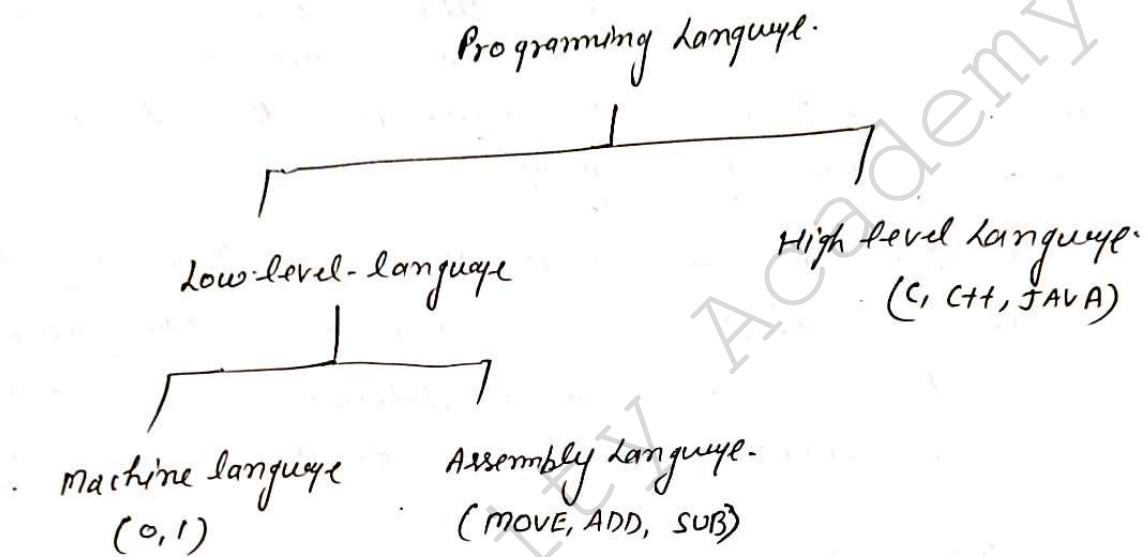 Programming Language.
Low-level-language
High level Language.
(C, C++, JAVA)
Machine language
(0,1)
Assembly Language.
(MOVE, ADD, SUB)
Academy